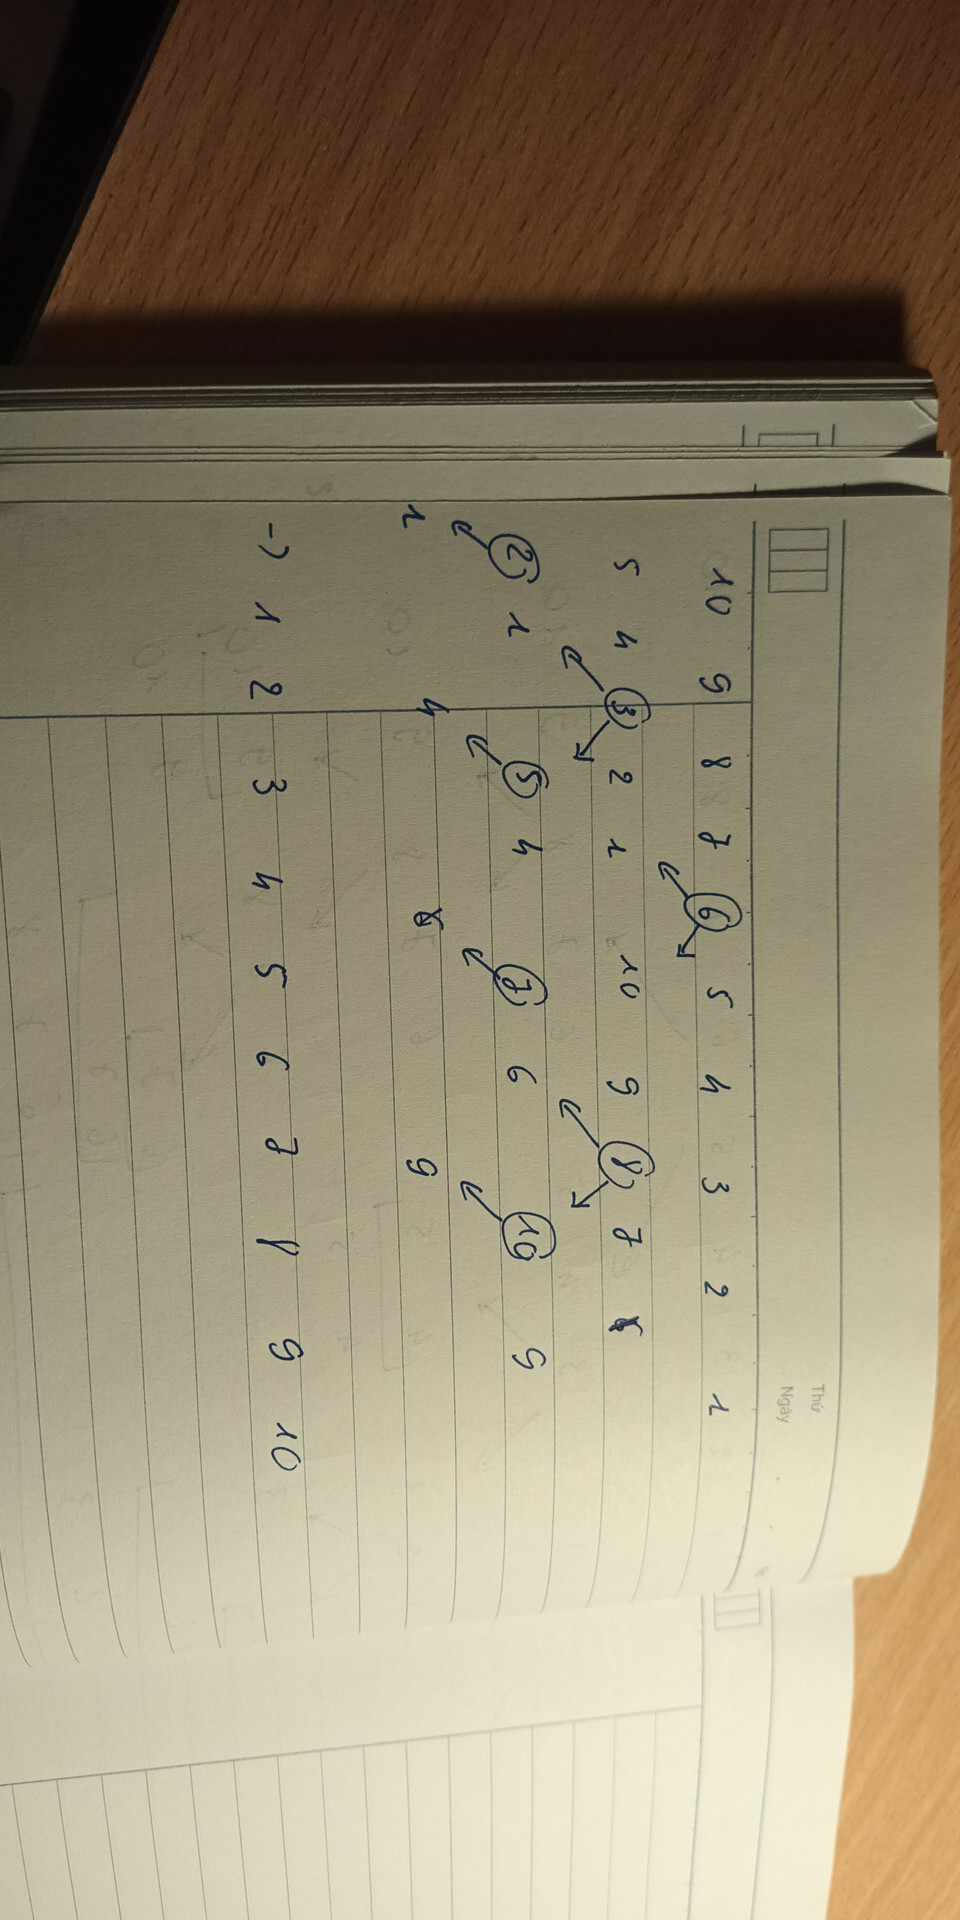 Thứ
Ngày
10 9 8 7 6 5 4 3 2 1
5 4 3 2 1 10 9 8 7
2 1 5 4 7 6 10 9
1 4 9
-) 1 2 3 4 5 6 7 8 9 10